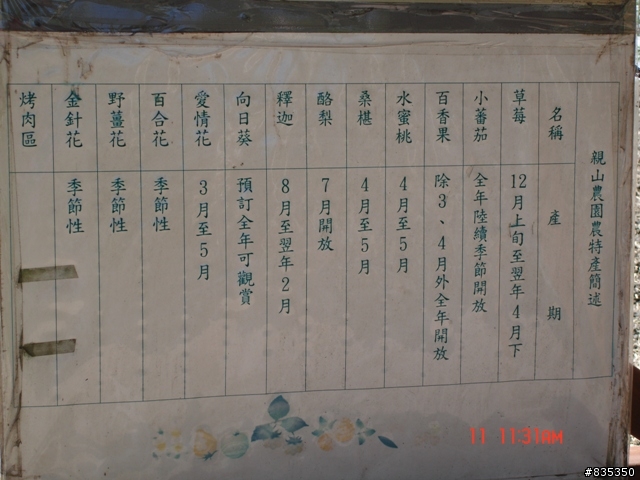 親山農園農特產簡述
名稱 產期
草莓 12月上旬至翌年4月下
小蕃茄 全年陸續季節開放
百香果 除3、4月外全年開放
水蜜桃 4月至5月
桑椹 4月至5月
酪梨 7月開放
釋迦 8月至翌年2月
向日葵 預訂全年可觀賞
愛情花 3月至5月
百合花 季節性
野薑花 季節性
金針花 季節性
烤肉區
11 11:37AM
#835350